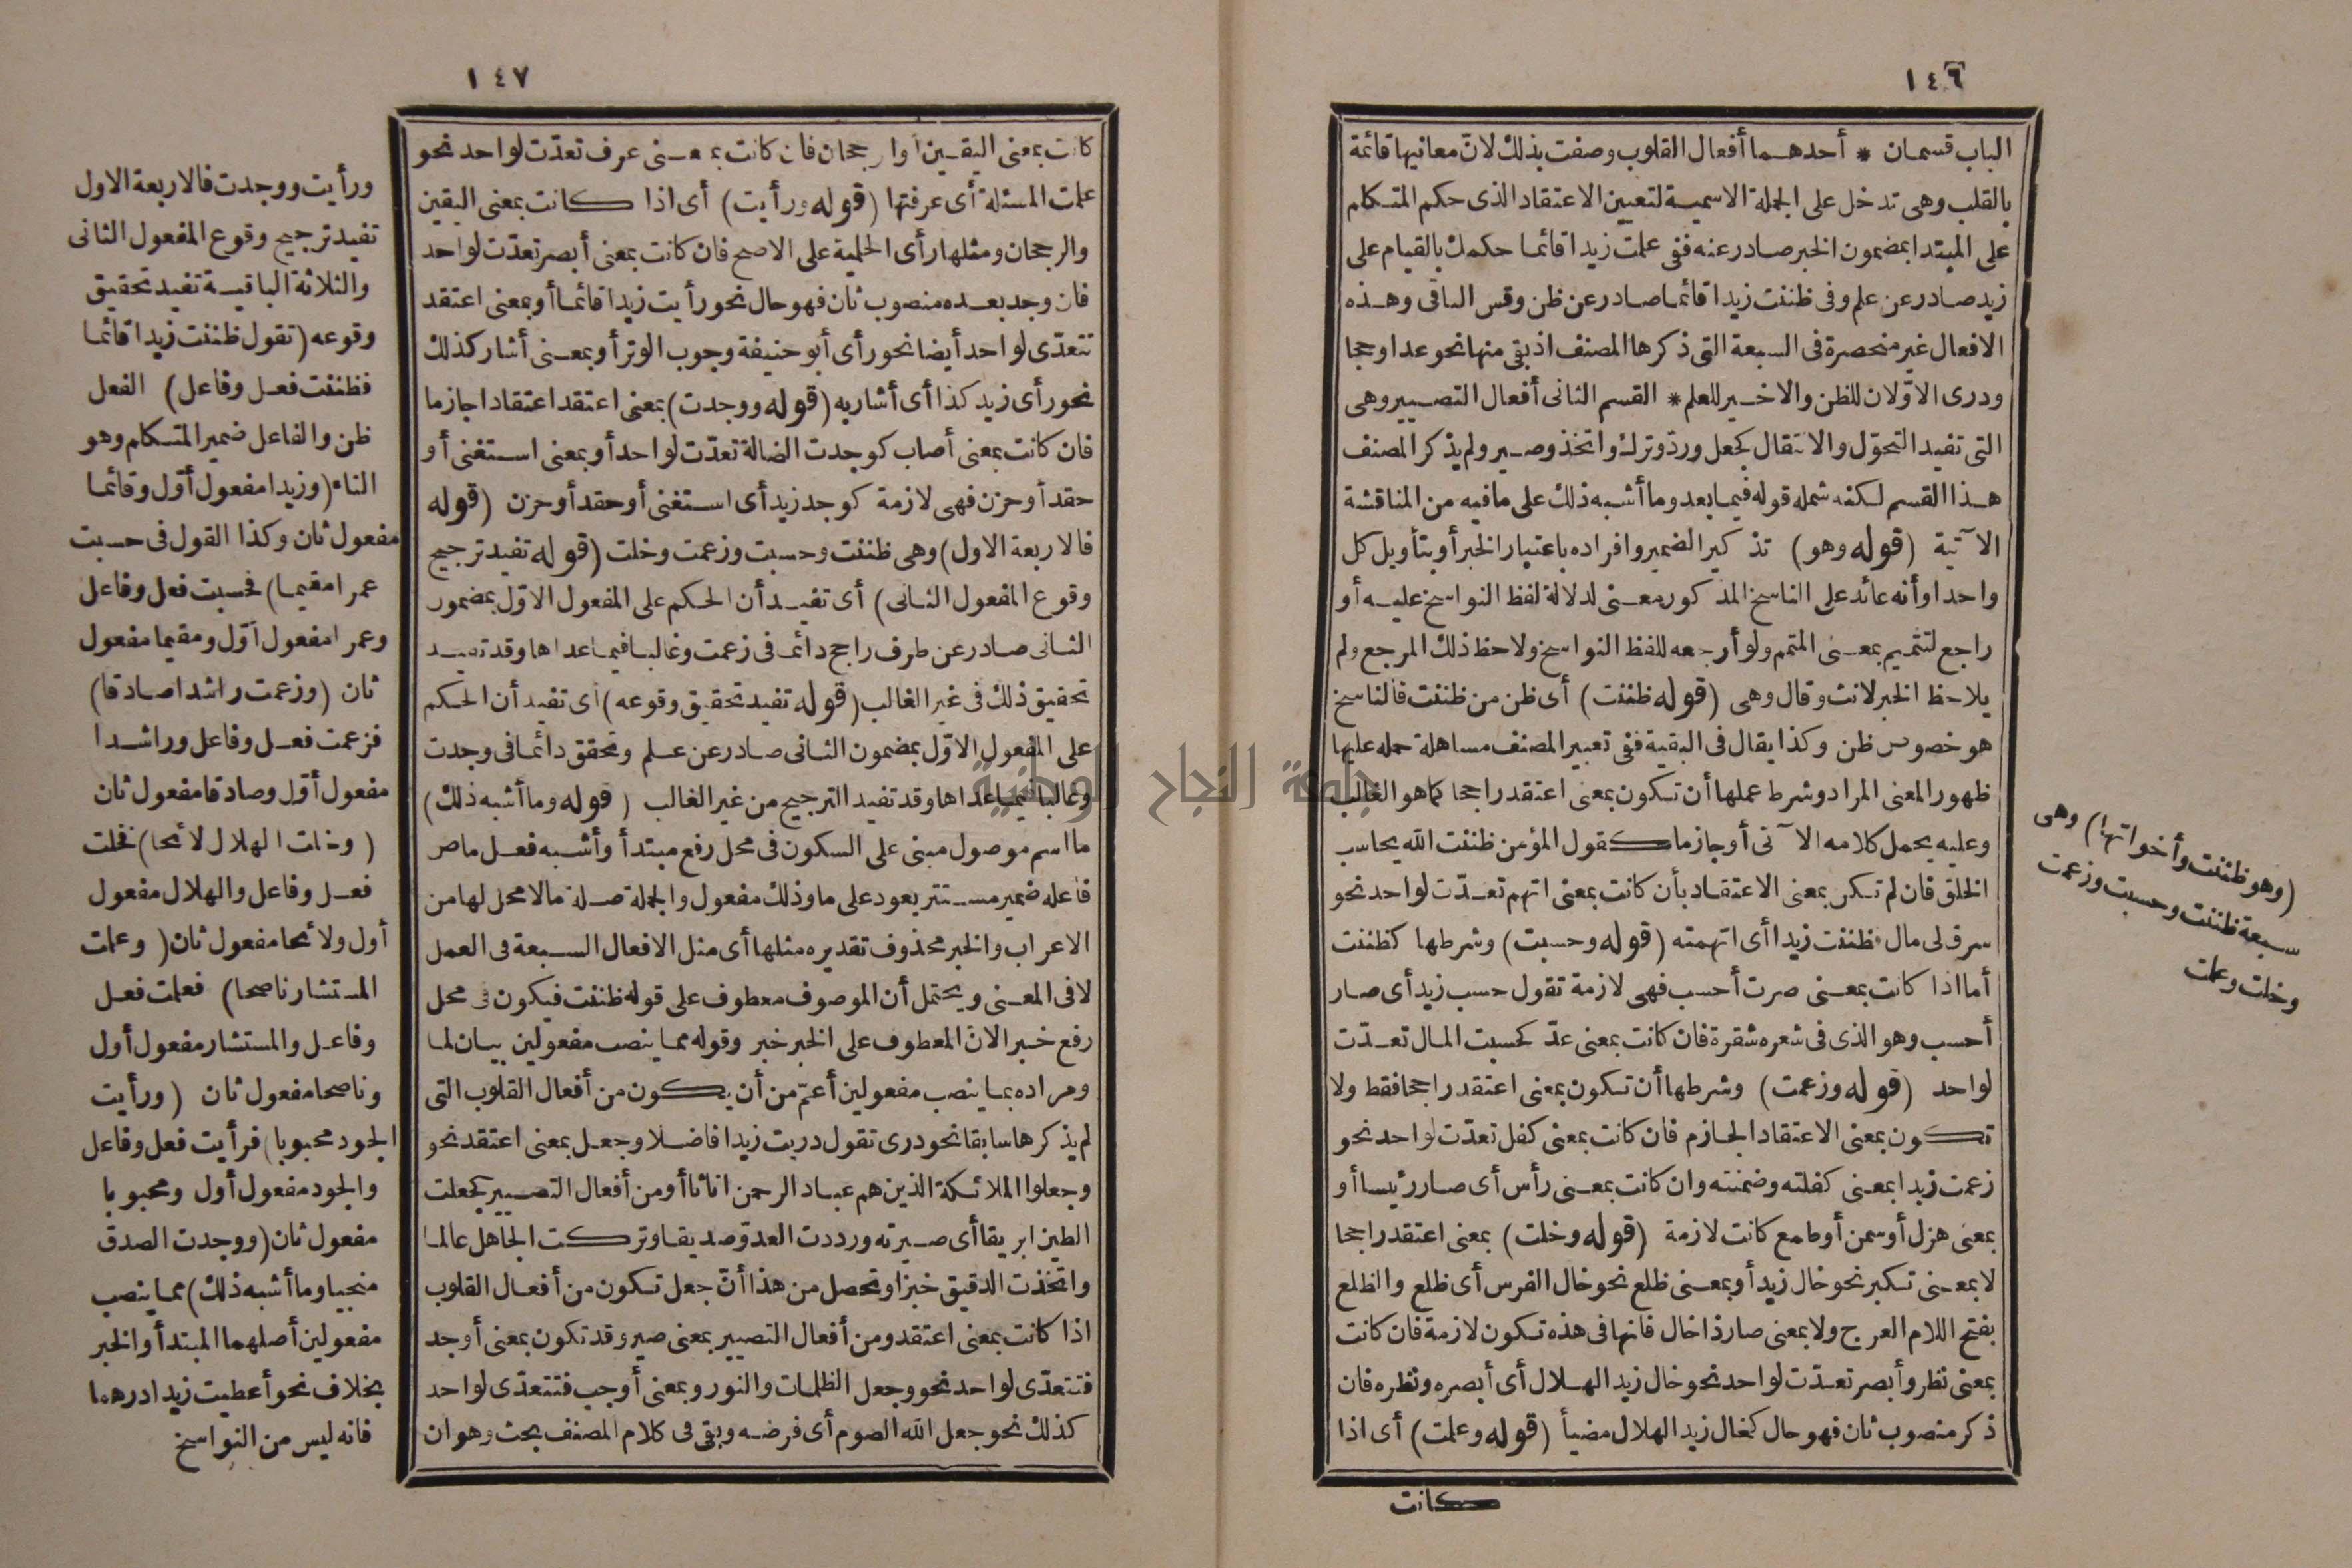 ١٤٦
الباب قسمان * أحدهما أفعال القلوب وصفت بذلك لانّ معانيها قائمة
بالقلب وهى تدخل على الجملة الاسمية لتعيين الاعتقاد الذى حكم المتكلم
على المبتدا بمضمون الخبر صادر عنه ففى علمت زيدا قائما حكمك بالقيام على
زيد صادر عن علم وفى ظننت زيدا قائما صادر عن ظن وقس الباقى وهذه
الافعال غير منحصرة فى السبعة التى ذكرها المصنف اذ بقى منها نحو عدا وحجا
ودرى الاوّلان للظن والاخير للعلم * القسم الثانى أفعال التصيير وهى
التى تفيد التحوّل والانتقال كجعل وردّ وترك واتخذ وصير ولم يذكر المصنف
هذا القسم لكنه شمله قوله فيما بعد وما أشبه ذلك على ما فيه من المناقشة
الآتية (قوله وهو) تذكير الضمير وافراده باعتبار الخبر أو بتأويل كل
واحد أو أنه عائد على الناسخ المذكور معنى لدلالة لفظ النواسخ عليه أو
راجع لتتميم بمعنى المتمم ولو أرجعه للفظ النواسخ ولاحظ ذلك المرجع ولم
يلاحظ الخبر لانث وقال وهى (قوله ظننت) أى ظن من ظننت فالناسخ
هو خصوص ظن وكذا يقال فى البقية ففى تعبير المصنف مساهلة حمله عليها
ظهور المعنى المراد وشرط عملها أن تكون بمعنى اعتقد راجحا كما هو الغالب
وعليه يحمل كلامه الآتى أو جازما كقول المؤمن ظننت الله يحاسب
الخلق فان لم تكن بمعنى الاعتقاد بأن كانت بمعنى اتهم تعدّت لواحد نحو
سرق لى مال فظننت زيدا أى اتهمته (قوله وحسبت) وشرطها كظننت
أما اذا كانت بمعنى صرت أحسب فهى لازمة تقول حسب زيد أى صار
أحسب وهو الذى فى شعره شقرة فان كانت بمعنى عدّ كحسبت المال تعدّت
لواحد (قوله وزعمت) وشرطها أن تكون بمعنى اعتقد راجحا فقط ولا
تكون بمعنى الاعتقاد الجازم فان كانت بمعنى كفل تعدّت لواحد نحو
زعمت زيدا بمعنى كفلته وضمنته وان كانت بمعنى رأس أى صار رئيسا أو
بمعنى هزل أو سمن أو طمع كانت لازمة (قوله وخلت) بمعنى اعتقد راجحا
لا بمعنى تكبر نحو خال زيد أو بمعنى ظلع نحو خال الفرس أى ظلع والظلع
بفتح اللام العرج ولا بمعنى صار ذا خال فانها فى هذه تكون لازمة فان كانت
بمعنى نظر وأبصر تعدّت لواحد نحو خال زيد الهلال أى أبصره ونظره فان
ذكر منصوب ثان فهو حال كخال زيد الهلال مضيأ (قوله وعلمت) أى اذا
كانت
(وهو ظننت وأخواتها) وهى
سبعة ظننت وحسبت وزعمت
وخلت وعلمت
١٤٧
كانت بمعنى اليقين أو الرجحان فان كانت بمعنى عرف تعدّت لواحد نحو
علمت المسئلة أى عرفتها (قوله ورأيت) أى اذا كانت بمعنى اليقين
والرجحان ومثلها رأى الحلمية على الاصح فان كانت بمعنى أبصر تعدّت لواحد
فان وجد بعده منصوب ثان فهو حال نحو رأيت زيدا قائما أو بمعنى اعتقد
تتعدّى لواحد أيضا نحو رأى أبو حنيفة وجوب الوتر أو بمعنى أشار كذلك
نحو رأى زيد كذا أى أشار به (قوله ووجدت) بمعنى اعتقد اعتقادا جازما
فان كانت بمعنى أصاب كوجدت الضالة تعدّت لواحد أو بمعنى استغنى أو
حقد أو حزن فهى لازمة كوجد زيد أى استغنى أو حقد أو حزن (قوله
فالاربعة الاول) وهى ظننت وحسبت وزعمت وخلت (قوله تفيد ترجيح
وقوع المفعول الثانى) أى تفيد أن الحكم على المفعول الاوّل بمضمون
الثانى صادر عن طرف راجح دائما فى زعمت وغالبا فيما عداها وقد تفيد
تحقيق ذلك فى غير الغالب (قوله تفيد تحقيق وقوعه) أى تفيد أن الحكم
على المفعول الاوّل بمضمون الثانى صادر عن علم وتحقق دائما فى وجدت
وغالبا فيما عداها وقد تفيد الترجيح من غير الغالب (قوله وما أشبه ذلك)
ما اسم موصول مبنى على السكون فى محل رفع مبتدأ وأشبه فعل ماض
فاعله ضمير مستتر يعود على ما وذلك مفعول والجملة صلة ما لا محل لها من
الاعراب والخبر محذوف تقديره مثلها أى مثل الافعال السبعة فى العمل
لا فى المعنى ويحتمل أن الموصوف معطوف على قوله ظننت فيكون فى محل
رفع خبر الانّ المعطوف على الخبر خبر وقوله مما ينصب مفعولين بيان لما
ومراده بما ينصب مفعولين أعمّ من أن يكون من أفعال القلوب التى
لم يذكرها سابقا نحو درى تقول دريت زيدا فاضلا وجعل بمعنى اعتقد نحو
وجعلوا الملائكة الذين هم عباد الرحمن اناثا أو من أفعال التصيير كجعلت
الطين ابريقا أى صيرته ورددت العدوّ صديقا وتركت الجاهل عالما
واتخذت الدقيق خبزا وتحصل من هذا أنّ جعل تكون من أفعال القلوب
اذا كانت بمعنى اعتقد ومن أفعال التصيير بمعنى صير وقد تكون بمعنى أوجد
فتتعدّى لواحد نحو وجعل الظلمات والنور وبمعنى أوجب فتتعدّى لواحد
كذلك نحو جعل الله الصوم أى فرضه وبقى فى كلام المصنف بحث وهو ان
ورأيت ووجدت فالاربعة الاول
تفيد ترجيح وقوع المفعول الثانى
والثلاثة الباقية تفيد تحقيق
وقوعه (تقول ظننت زيدا قائما
فظننت فعل وفاعل) الفعل
ظن والفاعل ضمير المتكلم وهو
التاء (وزيدا مفعول أوّل وقائما
مفعول ثان وكذا القول فى حسبت
عمرا مقيما) فحسبت فعل وفاعل
وعمرا مفعول أوّل ومقيما مفعول
ثان (وزعمت راشدا صادقا)
فزعمت فعل وفاعل وراشدا
مفعول أوّل وصادقا مفعول ثان
(وخلت الهلال لائحا) فخلت
فعل وفاعل والهلال مفعول
أول ولائحا مفعول ثان (وعلمت
المستشار ناصحا) فعلمت فعل
وفاعل والمستشار مفعول أول
وناصحا مفعول ثان (ورأيت
الجود محبوبا) فرأيت فعل وفاعل
والجود مفعول أول ومحبوبا
مفعول ثان (ووجدت الصدق
منجيا وما أشبه ذلك) مما ينصب
مفعولين أصلهما المبتدأ والخبر
بخلاف نحو أعطيت زيدا درهما
فانه ليس من النواسخ
جامعة النجاح الوطنية